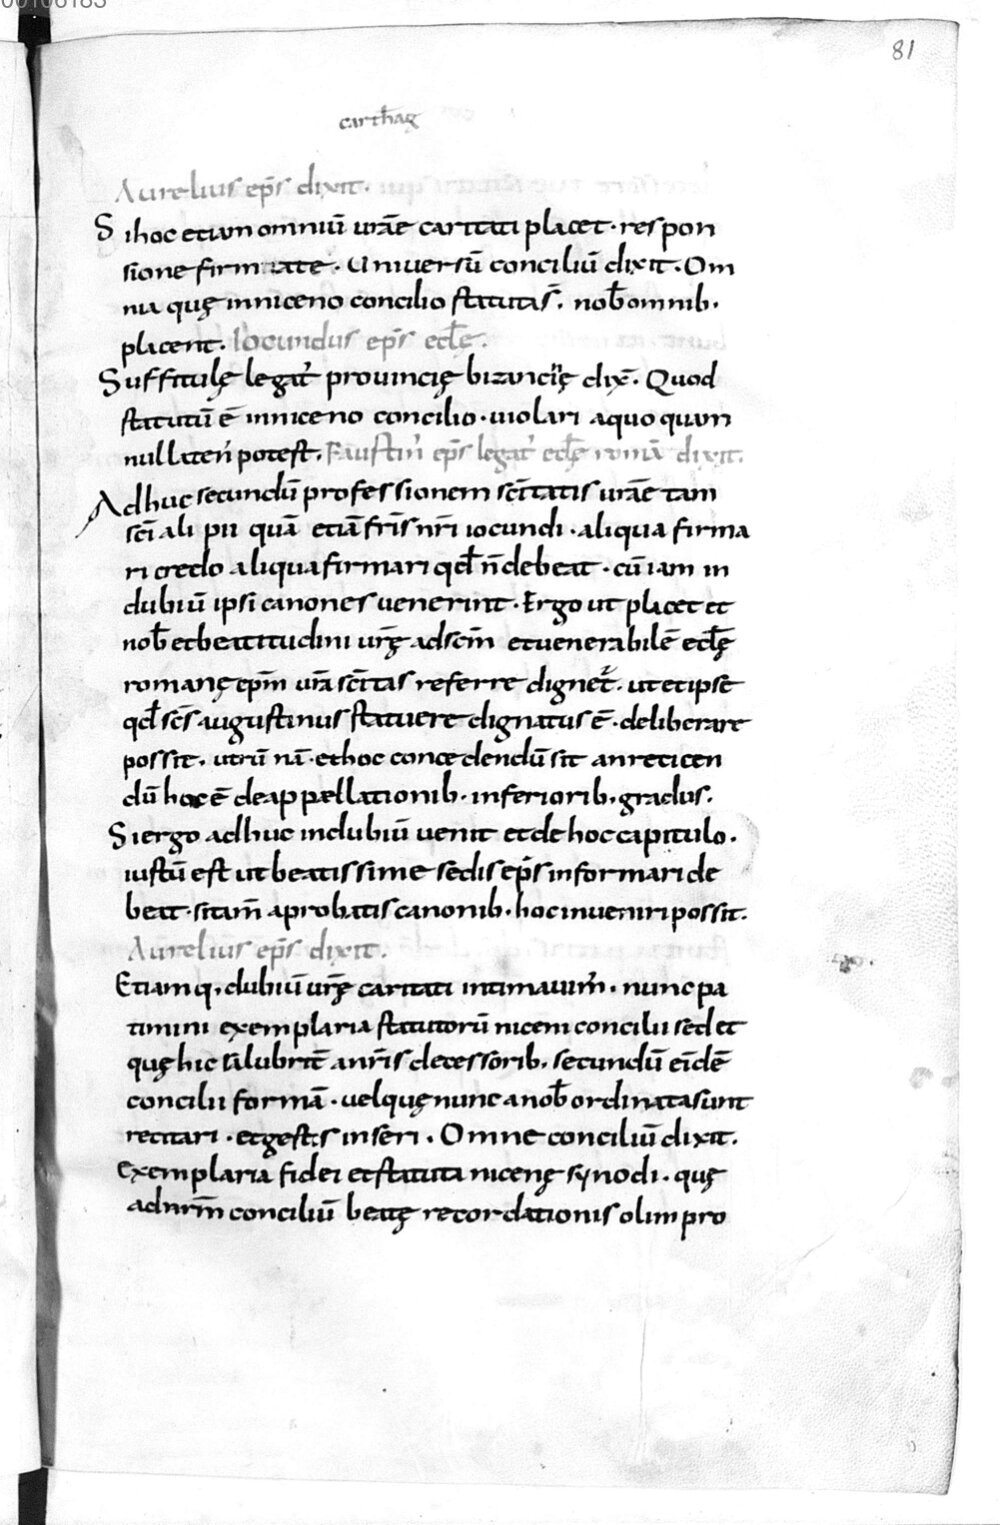 00106183
81
carth̄ag
Aurelius ep̄s dixit.
Si hoc etiam omniū ur̄ae caritati placet · respon
sione firmate · Uniuersū conciliū dixit · Om
nia quę in niceno concilio statuta s̄. nob̄ omnib.
placent. Iocundus ep̄s eccl̄ę.
Suffitulę legat' prouincię bizancię dix̄. Quod
statutū ē in niceno concilio · uiolari a quoquam
nullaten' potest. Faustin' ep̄s legat' eccl̄ę romā dixit.
Adhuc secundū professionem sc̄itatis ur̄ae tam
sc̄i ali pii quā etiā fr̄is nr̄i iocundi · aliqua firma
ri credo aliqua firmari qd̄ n̄ debeat · cū iam in
dubiū ipsi canones uenerint · Ergo ut placet et
nob̄ et beatitudini ur̄ę ad sc̄m et uenerabilē eccl̄ę
romanę ep̄m ur̄a sc̄itas referre dignet̄. ut et ipse
qd̄ sc̄s augustinus statuere dignatus ē · deliberare
possit. utrū nā · et hoc concedendū sit an reticen
dū hoc ē de appaellationib. inferiorib. gradus.
Si ergo adhuc in dubiū uenit et de hoc capitulo.
iustū est ut beatissime sedis ep̄s informari de
beat · si tam̄ a probatis canonib. hoc inueniri possit.
Aurelius ep̄s dixit.
Etiam q. dubiū ur̄ę caritati intimauim'. nunc pa
timini exemplaria statutorū niceni concilii sed et
quę hic salubrit̄ a nr̄is decessorib. secundū eīdē
concilii formā · uel quę nunc a nob̄ ordinata sunt
recitari · et gestis inseri. Omne conciliū dixit.
Exemplaria fidei et statuta nicenę synodi. quę
ad nr̄m conciliū beatę recordationis olim pro